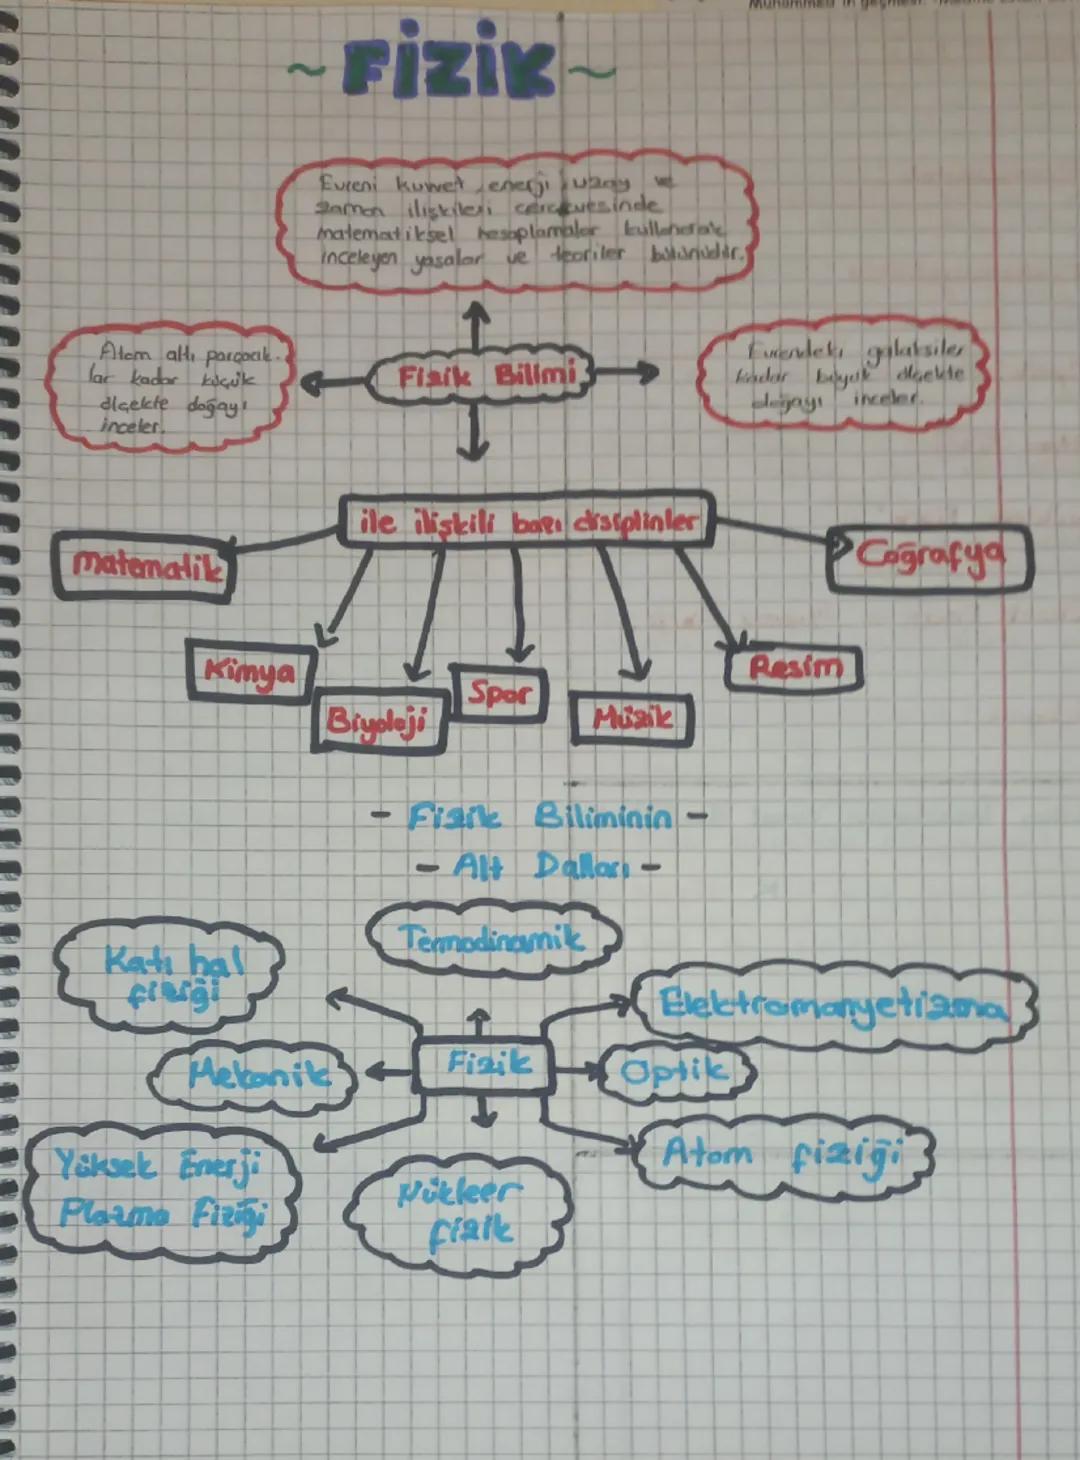 ~ FiZiK ~
Evreni kuvvet, enerji, uzay ve
zaman ilişkileri çerçevesinde
matematiksel hesaplamalar kullanarak
inceleyen yasalar ve teoriler bütünüdür.
Atom altı parçacık-
lar kadar küçük
ölçekte doğayı
inceler.
Fizik Bilimi
Evrendeki galaksiler
kadar büyük ölçekte
doğayı inceler.
ile ilişkili bazı disiplinler
matematik
Coğrafya
Kimya
Resim
Spor
Biyoloji
Müzik
- Fizik Biliminin -
- Alt Dalları -
Termodinamik
Katı hal
fiziği
Elektromanyetizma
Mekanik
Fizik
Optik
Yüksek Enerji
Plazma Fiziği
Nükleer
fizik
Atom fiziği